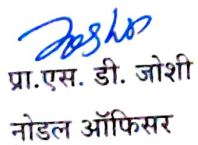 Joshi
प्रा.एस. डी. जोशी
नोडल ऑफिसर